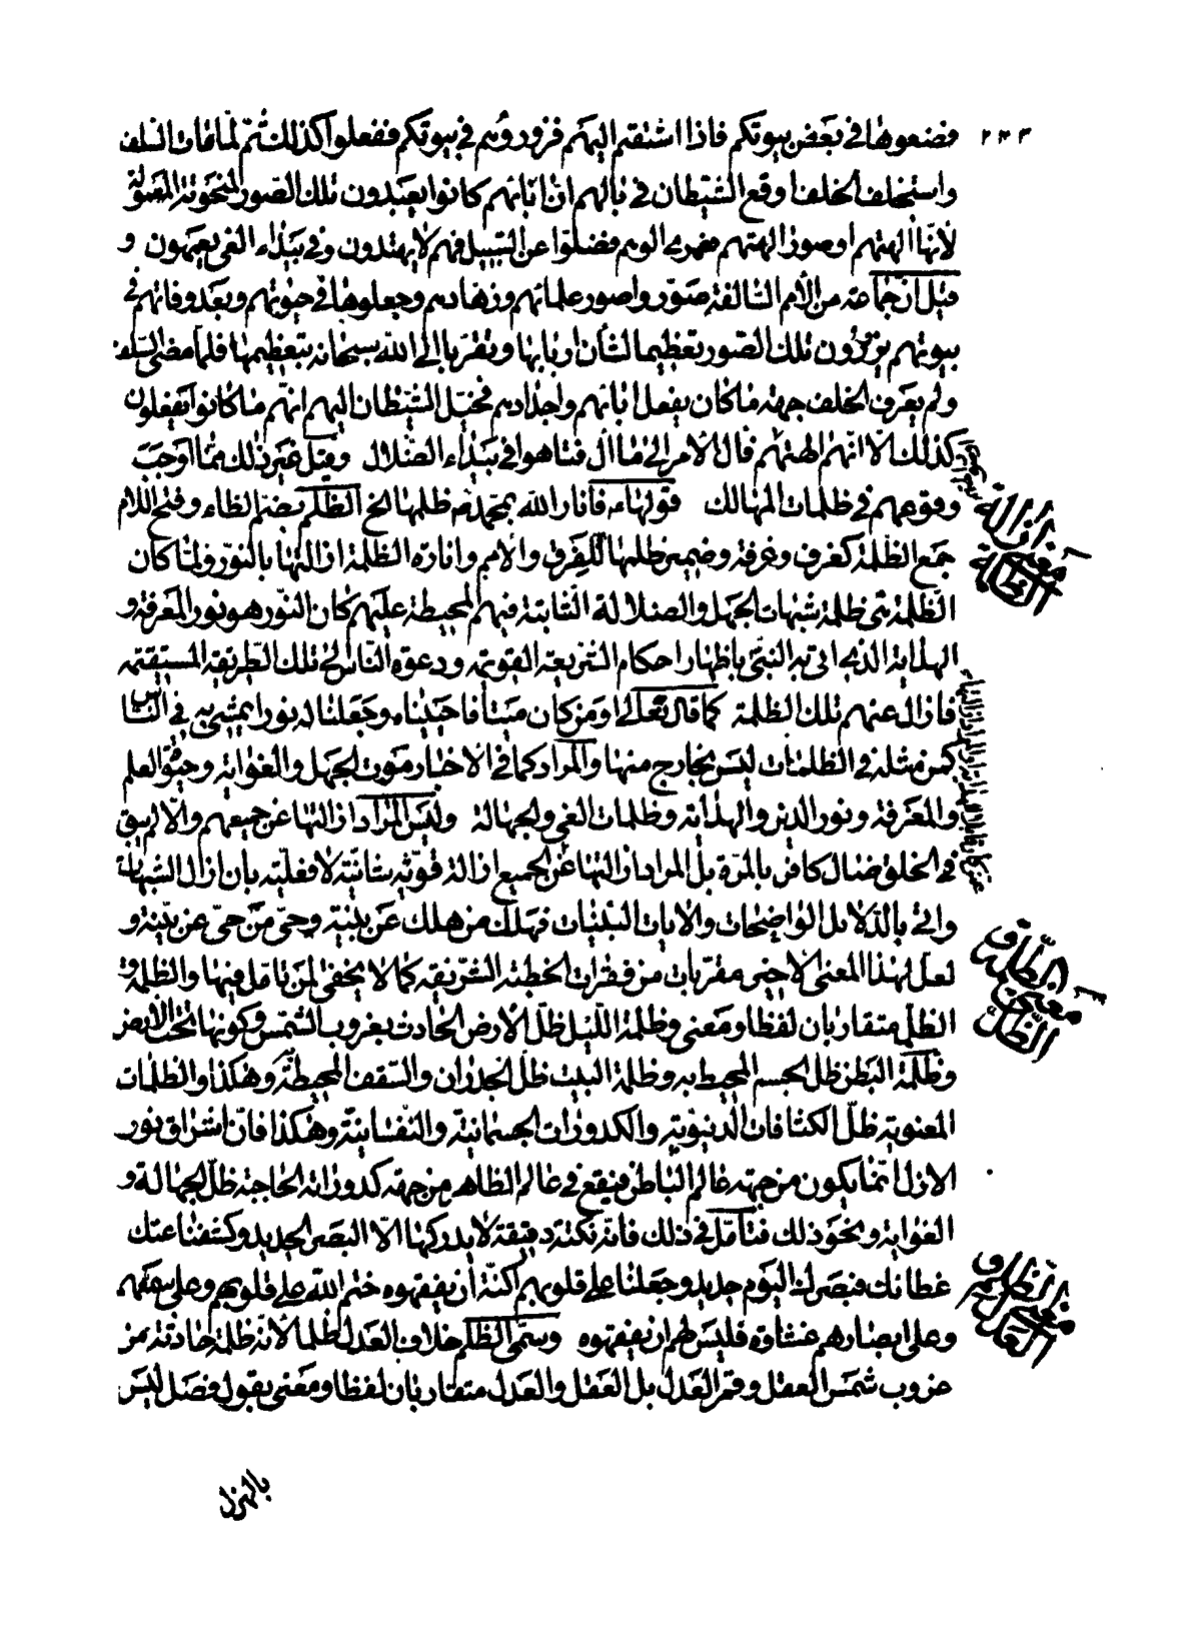 ٢٣٣
فضعوها في بعض بيوتكم فاذا اشتقتم اليهم فزوروهم في بيوتكم ففعلوا كذلك ثم لما مات السلف
واستخلف الخلف اوقع الشيطان في بالهم ان اباءهم كانوا يعبدون تلك الصور المنحوتة المعمولة
لانها الهتهم او صور الهتهم فضلوا عن السبيل فهم لا يهتدون وفي بيداء الغي يعمهون و
قيل ان جماعة من الأمم السالفة صوروا صور علمائهم وزهادهم وجعلوها في حيوتهم وبعد وفاتهم في
بيوتهم يزورون تلك الصور تعظيما لشأن اربابها وتقربا الى الله سبحانه بتعظيمها فلما مضى السلف
ولم يعرف الخلف جهة ما كان يفعل اباءهم واجدادهم فخيل الشيطان اليهم انهم ما كانوا يفعلون
كذلك الا انهم الهتهم فال الامر الى ما ال فتاهوا في بيداء الضلال وقيل غير ذلك مما اوجب
وقوعهم في ظلمات المهالك قولها ع فانار الله بمحمد ص ظلمها الخ الظلم بضم الظاء وفتح اللام
جمع الظلمة كغرف وغرفة وضمير ظلمها للفرق والامم وانارة الظلمة ازالتها بالنور ولما كان
الظلمة هي ظلمة شبهات الجهل والضلالة الثابتة فيهم المحيطة عليهم كان النور هو نور المعرفة و
الهداية الذي اتى به النبي باظهار احكام الشريعة القويمة ودعوة الناس الى تلك الطريقة المستقيمة
فازال عنهم تلك الظلمة كما قال تعالى اومن كان ميتا فاحييناه وجعلنا له نورا يمشي به في الناس
كمن مثله في الظلمات ليس بخارج منها والمراد كما في الاخبار موت الجهل والغواية وحيوة العلم
والمعرفة ونور الدين والهداية وظلمات الغي والجهالة وليس المراد ازالتها عن جميعهم والا لم يبق
في الخلق ضال كافر بالمرة بل المراد ازالتها عن الجميع ازالة قوية شانية لا فعلية بان ازال الشبهات
واتى بالدلائل الواضحات والايات البينات فهلك من هلك عن بينة وحي من حي عن بينة و
لعل لهذا المعنى الاخير مقربات من فقرات الخطبة الشريفة كما لا يخفى لمن تامل فيها والظلمة و
الظل متقاربان لفظا ومعنى وظلمة الليل ظل الارض الحادث بغروب الشمس وكونها تحت الارض
وظلمة البطن ظل الجسم المحيط به وظلمة البيت ظل الجدران والسقف المحيطة وهكذا والظلمات
المعنوية ظل الكثافات الدنيوية والكدورات الجسمانية والنفسانية وهكذا فان اشراق نور
الازل انما يكون من جهة عالم الباطن فيقع في عالم الظاهر من جهة كدوراته الحاجبة ظل الجهالة و
الغواية ونحو ذلك فتامل في ذلك فانه نكتة دقيقة لا يدركها الا البصر الحديد وكشفنا عنك
غطائك فبصرك اليوم حديد وجعلنا على قلوبهم اكنة أن يفقهوه ختم الله على قلوبهم وعلى سمعهم
وعلى ابصارهم غشاوة فليس لهم ان يفقهوه وسمى الظلم خلاف العدل ظلما لانه ظلمة حادثة من
غروب شمس العقل وقمر العدل بل العقل والعدل متقاربان لفظا ومعنى يقول فصل ليس
بالهزل
معنى ازالة
الظلمة
الظل